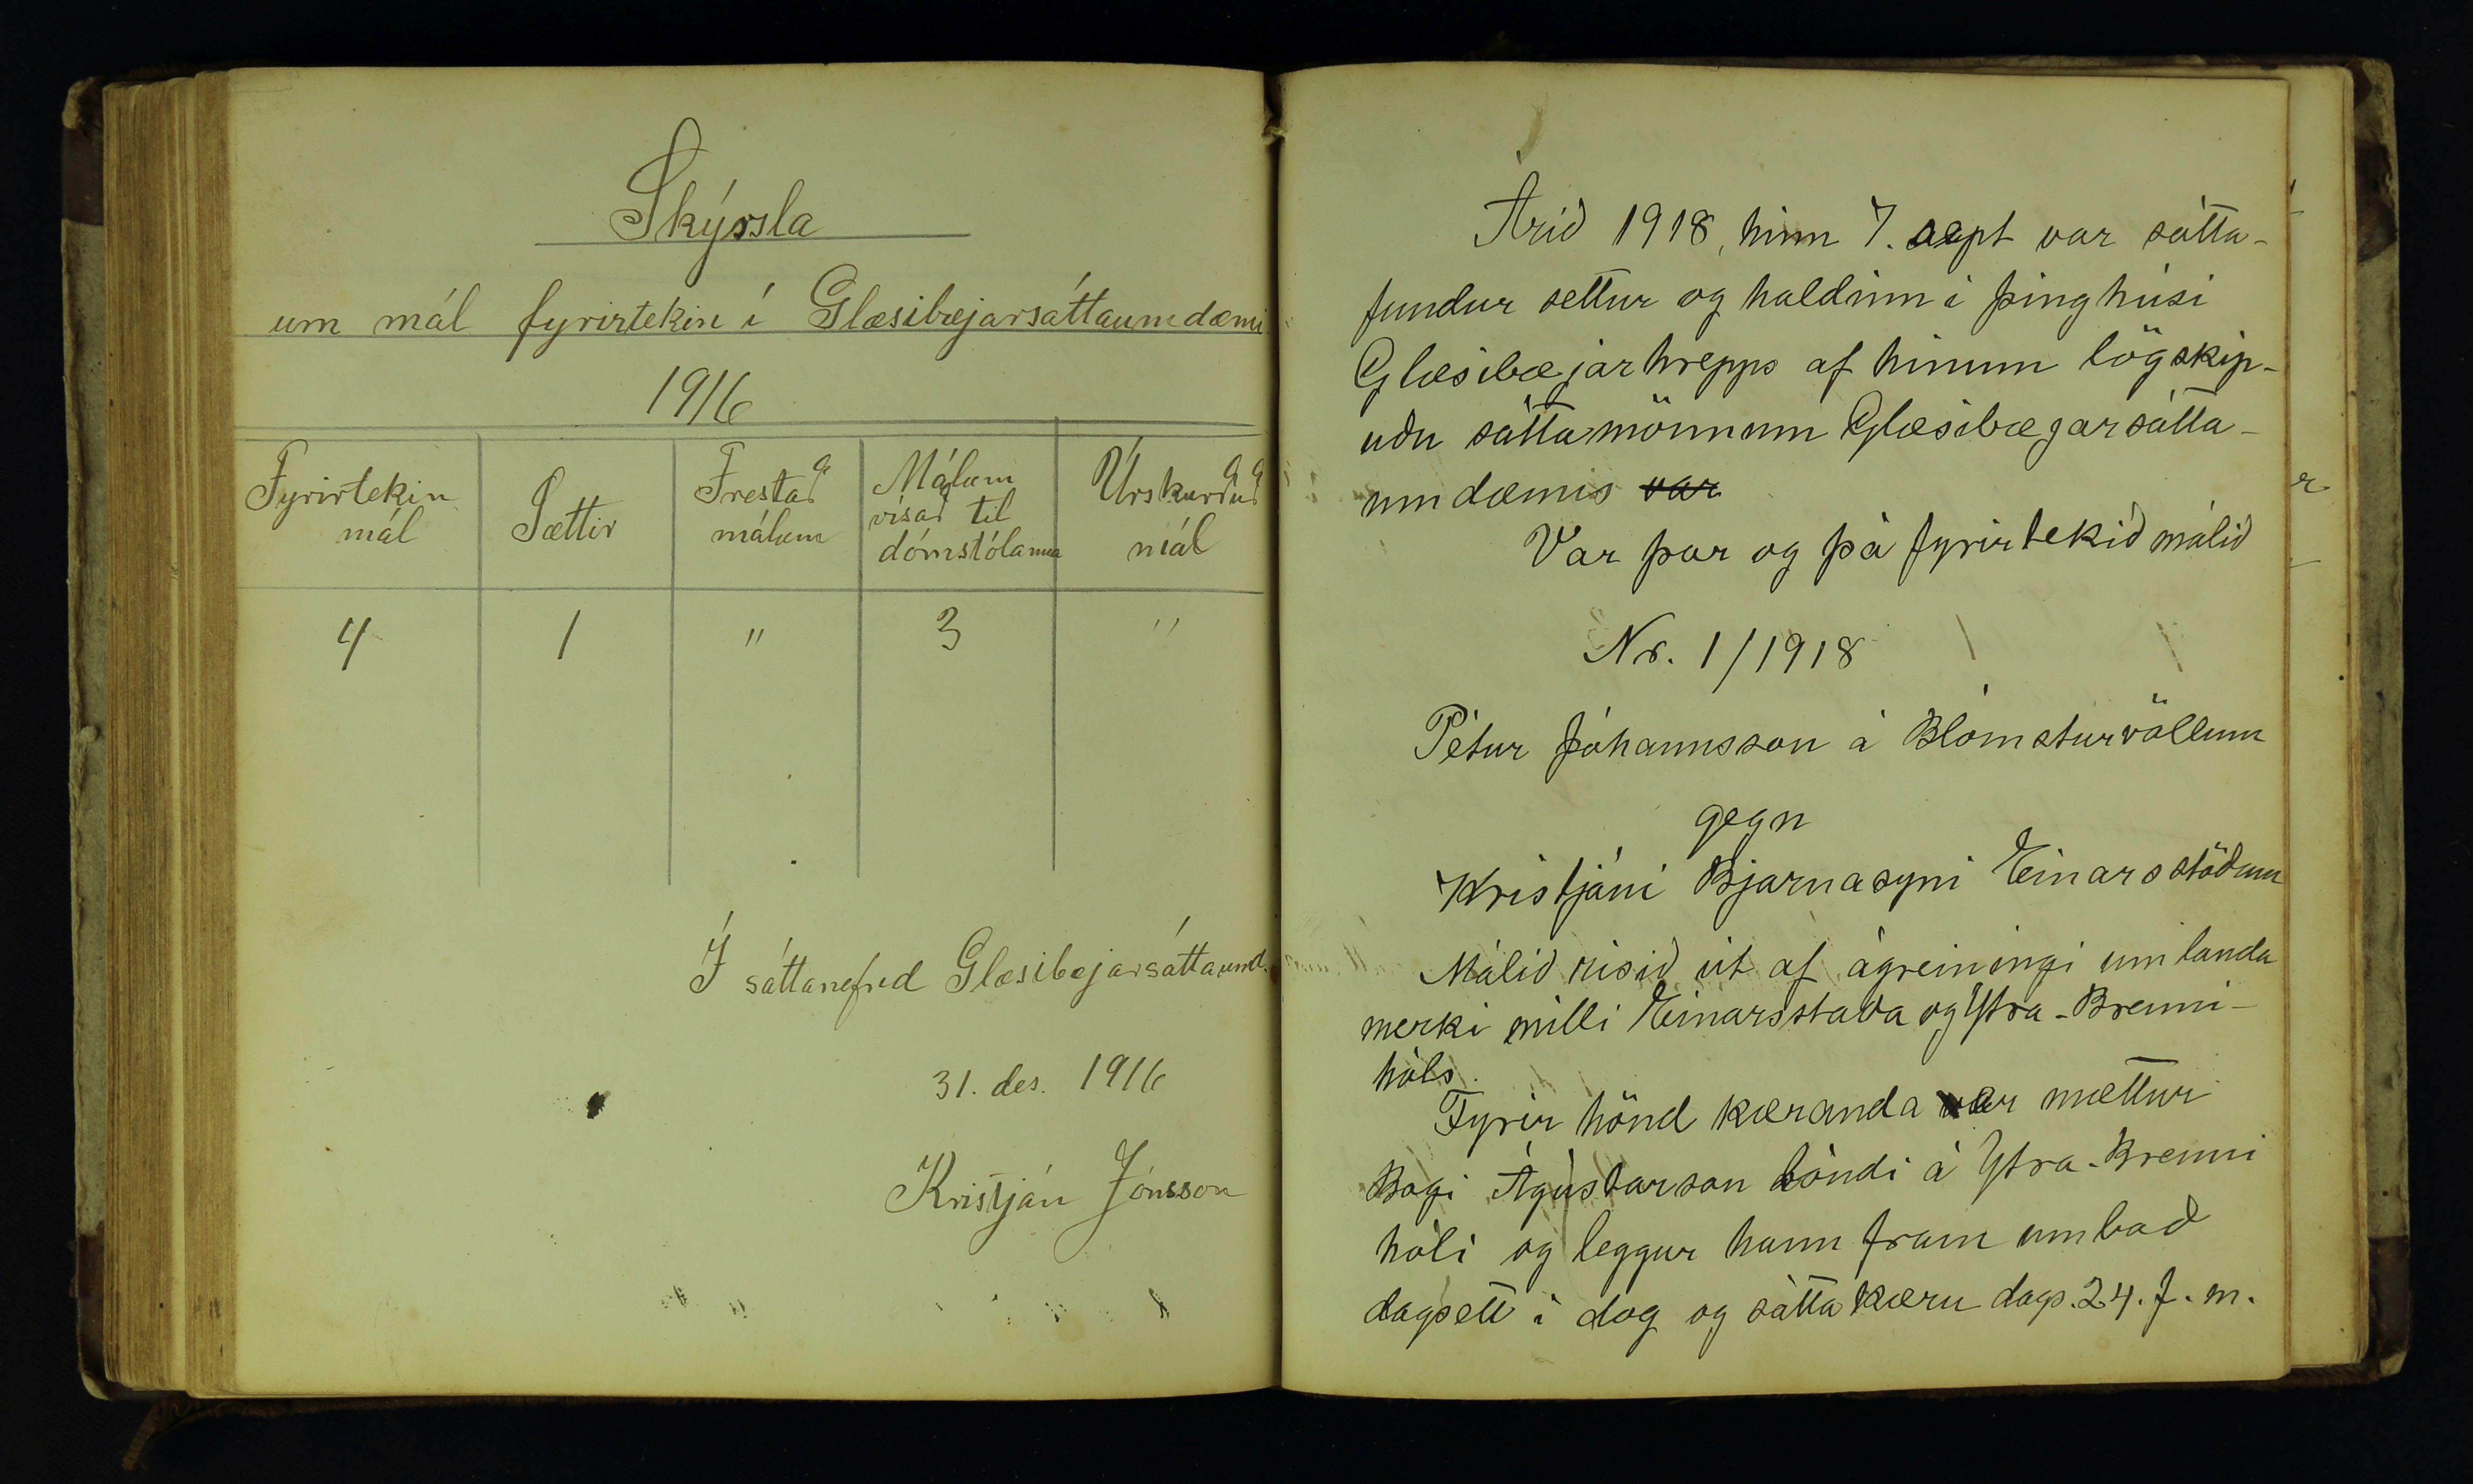 Skýrsla
um mál fyrirtekin í Glæsibæjarsáttaumdæmi
1916
Fyrirtekin mál
Sættir
Frestað málum
Málum vísað til dómstólanna
Úrskurðuð mál
4 1 " 3 "
Í sáttanefnd Glæsibæjarsáttaumd.
31. des. 1916
Kristján Jónsson
Árið 1918, hinn 7. sept var sátta-
fundur settur og haldinn í þinghúsi
Glæsibæjarhrepps af hinum lögskip-
uðu sáttamönnum Glæsibæjarsátta-
umdæmis var
Var þar og þá fyrirtekið málið
Nr. 1/1918
Pétur Jóhannsson á Blómsturvöllum
gegn
Kristjáni Bjarnasyni Einarsstöðum
Málið risið út af ágreiningi um landa
merki milli Einarsstaða og Ytra-Brenni-
hóls.
Fyrir hönd kæranda er mættur
Bogi Ágústarson bóndi á Ytra-Brenni
hóli og leggur hann fram umboð
dagsett í dag og sáttakæru dags. 24. f. m.